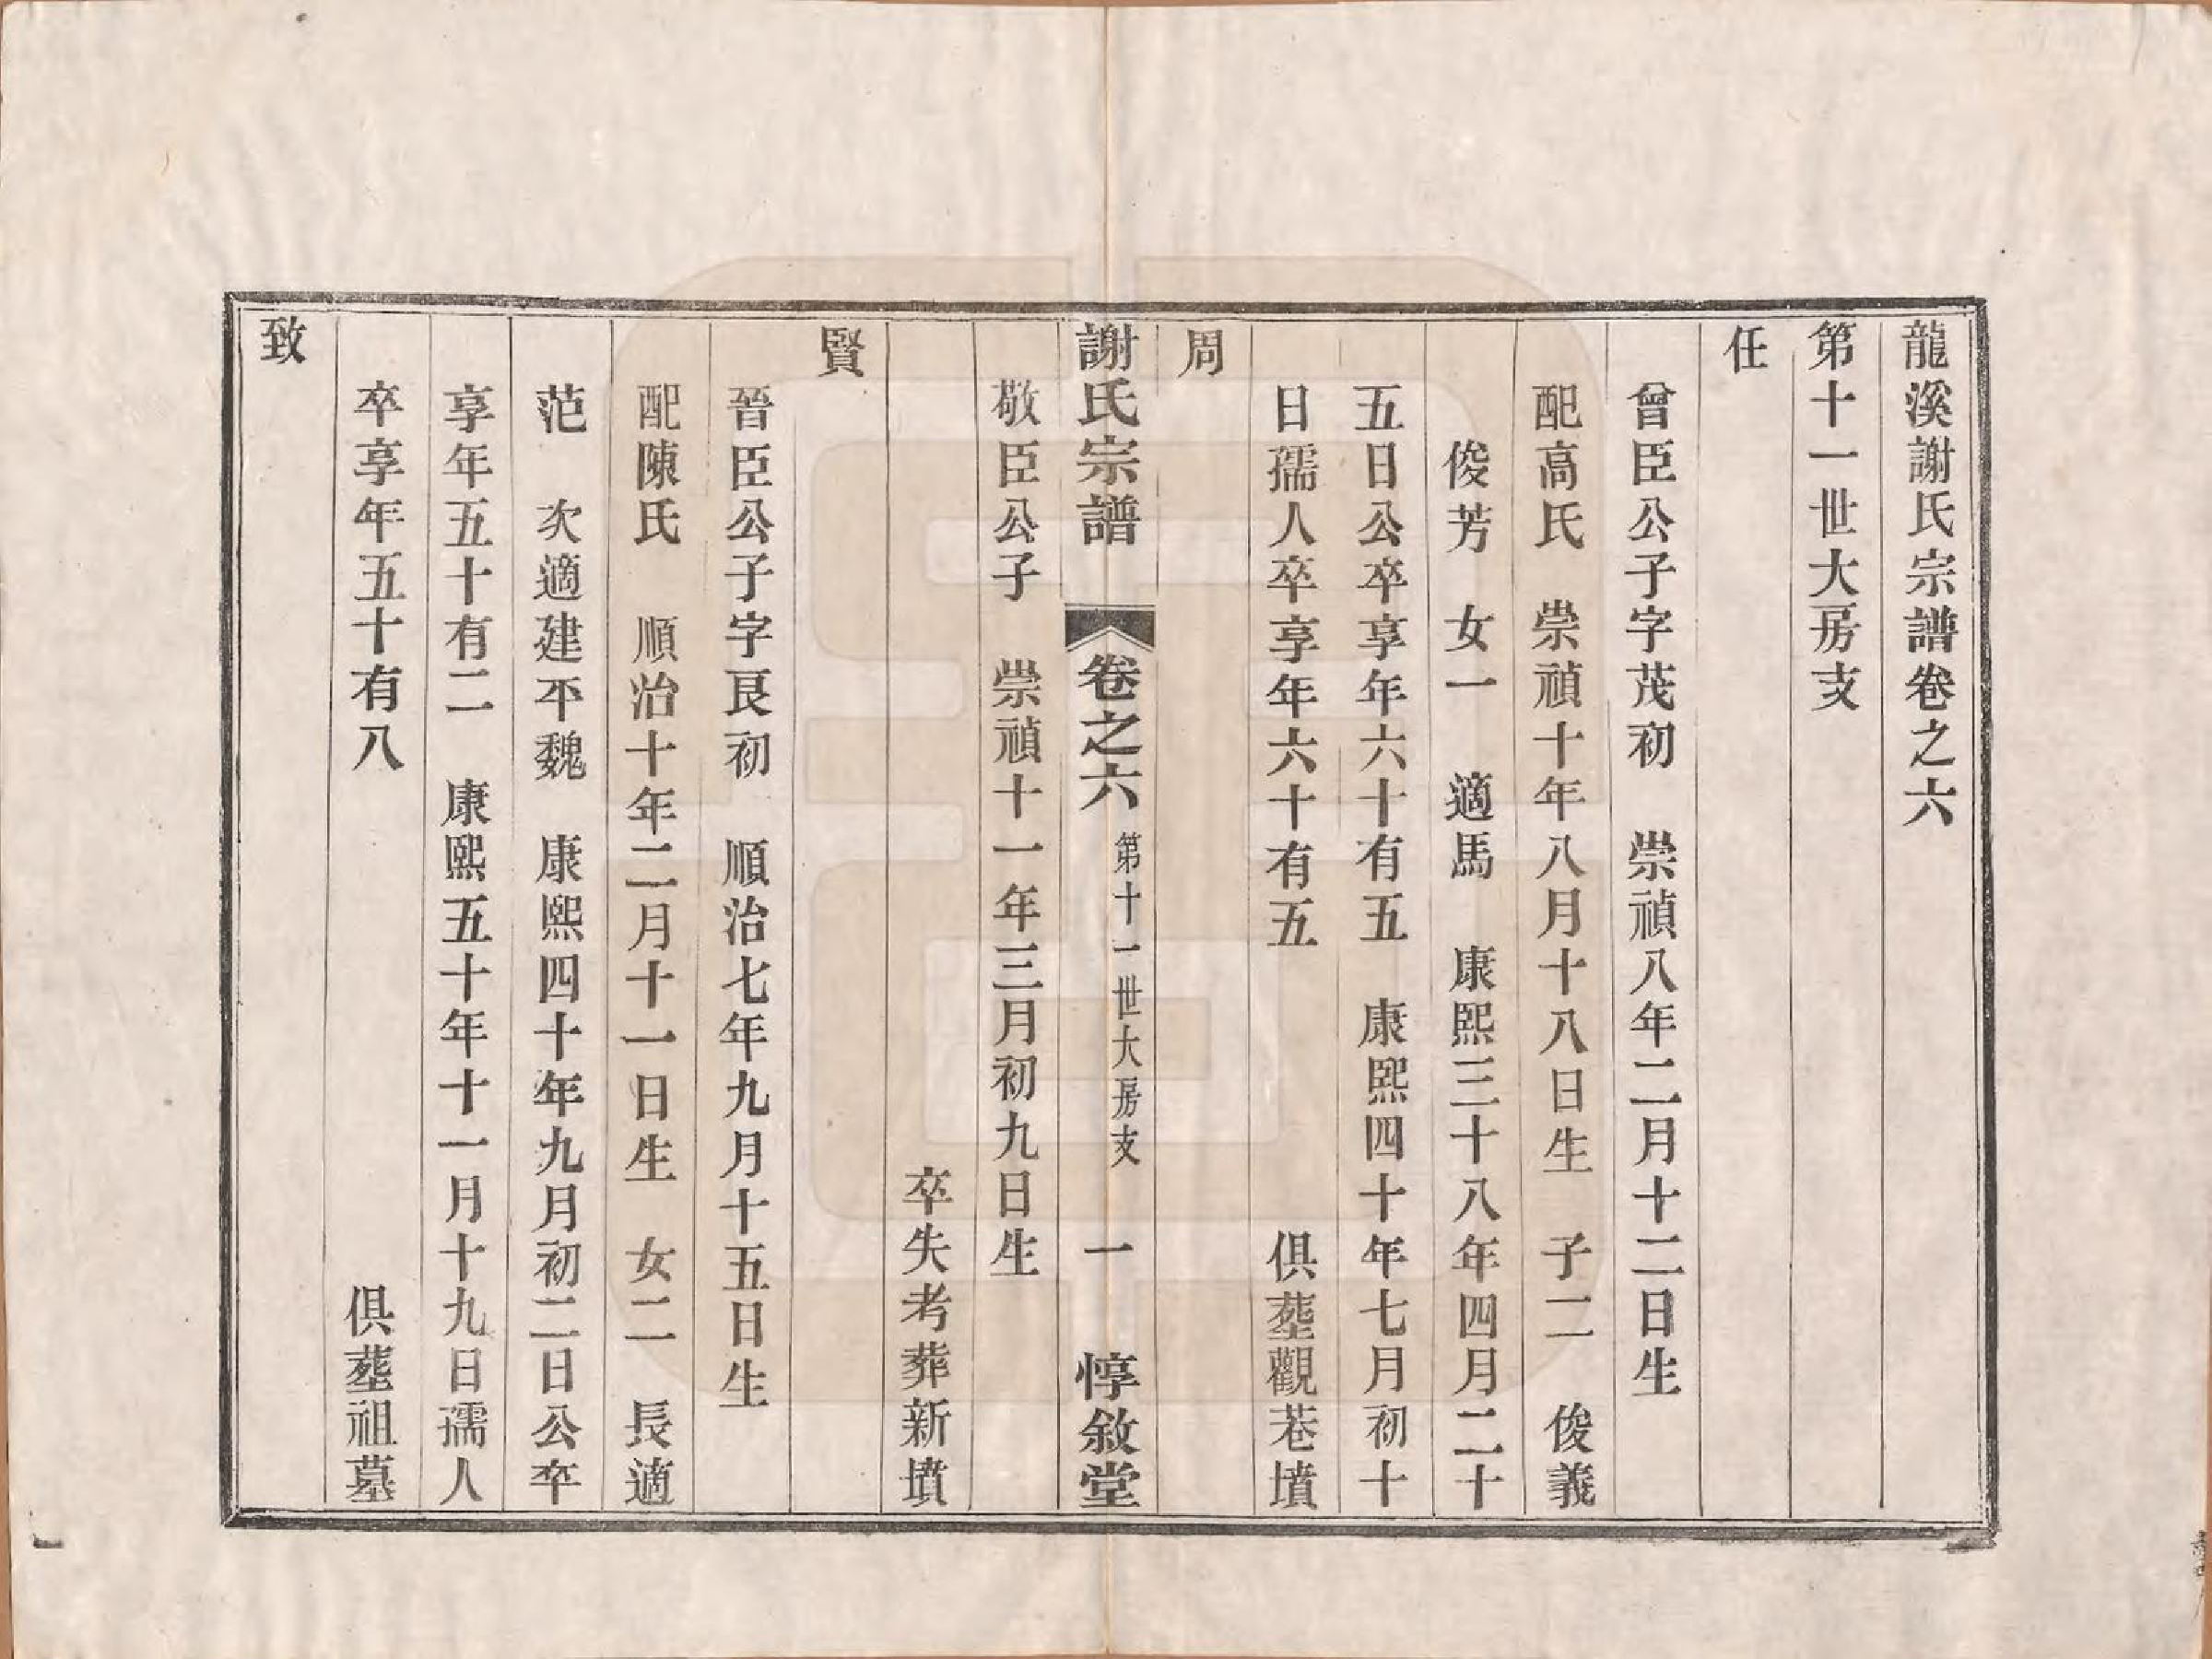 龍溪謝氏宗譜卷之六
第十一世大房支
任
曾臣公子字茂初　崇禎八年二月十二日生
配高氏　崇禎十年八月十八日生　子二　俊義
俊芳　女一　適馬　康熙三十八年四月二十
五日公卒享年六十有五　康熙四十年七月初十
日孺人卒享年六十有五　俱塟觀巷墳
周
謝氏宗譜　卷之六　第十一世大房支　一　惇敘堂
敬臣公子　崇禎十一年三月初九日生
卒失考葬新墳
賢
晉臣公子字艮初　順治七年九月十五日生
配陳氏　順治十年二月十一日生　女二　長適
范　次適建平魏　康熙四十年九月初二日公卒
享年五十有二　康熙五十年十一月十九日孺人
卒享年五十有八　俱塟祖墓
致